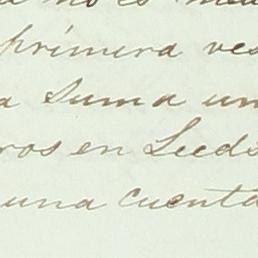 no es
primera ves
a suma un
ros en Leeds
una cuenta